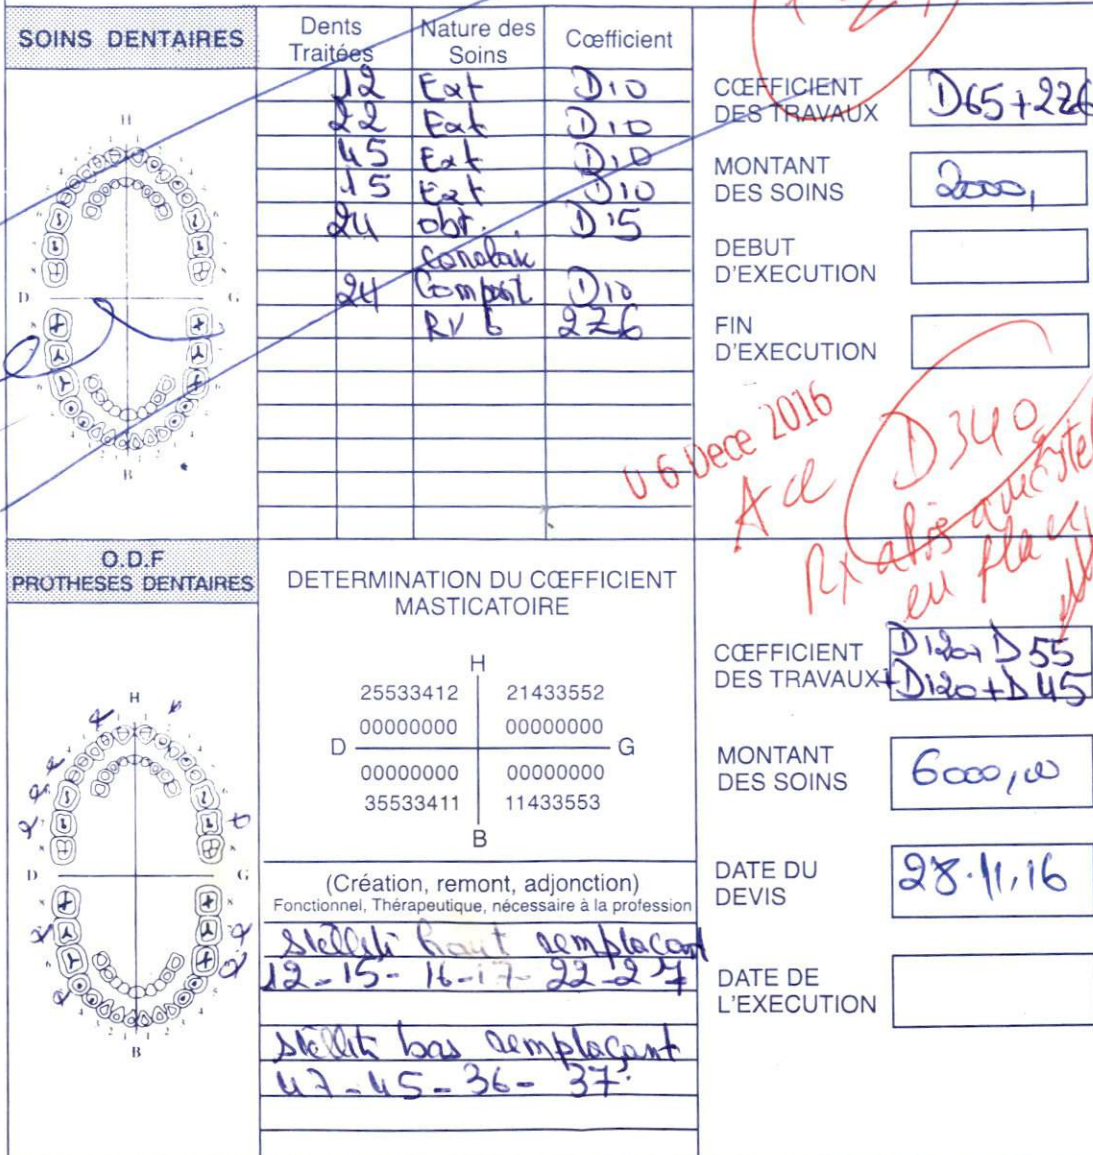 SOINS DENTAIRES
Dents Traitées
Nature des Soins
Cœfficient
12 Ext D10
22 Ext D10
45 Ext D10
15 Ext D10
24 obt. D15
24 Compost D10
RV 6 2Z6
CŒFFICIENT DES TRAVAUX D65+2Z6
MONTANT DES SOINS 2000,
DEBUT D'EXECUTION
FIN D'EXECUTION
H
D G
B
06 Dece 2016
D340
Rx
en place
O.D.F
PROTHESES DENTAIRES
DETERMINATION DU CŒFFICIENT
MASTICATOIRE
H
25533412 21433552
00000000 00000000
D G
00000000 00000000
35533411 11433553
B
H
D G
B
(Création, remont, adjonction)
Fonctionnel, Thérapeutique, nécessaire à la profession
stellite haut remplaçant
12-15-16-17-22-27
stellite bas remplaçant
47-45-36-37.
CŒFFICIENT DES TRAVAUX D120+D55
+D120+D45
MONTANT DES SOINS 6000,00
DATE DU DEVIS 28.11.16
DATE DE L'EXECUTION